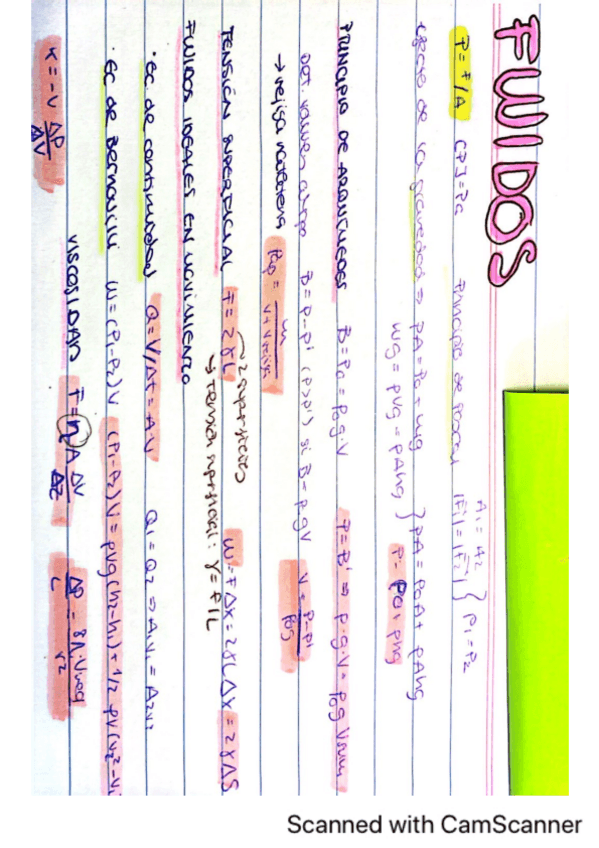 FLUIDOS
P = F/A [P] = Pa Principio de Pascal A₁ = A₂ |F₁| = |F₂| } P₁ = P₂
efecto de la gravedad ⇒ PA = P₀ + mg
mg = ρVg = ρAhg } PA = P₀A + ρAhg
P = P₀ + ρhg
PRINCIPIO DE ARQUÍMEDES B = Pg = ρfg·V P = B' ⇒ ρ·g·V = ρfg Vsum
Det. volumen cuerpo B = P - P' (P>P') si B = ρfgV V = P-P'/ρfg
→ vejiga natatoria ρp = m/V+Vvejiga
TENSIÓN SUPERFICIAL F = 2γL → 2 superficies W = FΔx = 2γLΔx = 2γΔS
→ Tensión superficial: γ = F/L
FLUIDOS IDEALES EN MOVIMIENTO
· ec. de continuidad Q = V/Δt = A·v Q₁ = Q₂ ⇒ A₁v₁ = A₂v₂
· ec de Bernoulli W = (P₁-P₂)V (P₁-P₂)V = ρVg(h₂-h₁) + 1/2 ρV(v₂²-v₁
VISCOSIDAD F = ηA Δv/Δz ΔP/L = 8η·Vmed/r²
K = -V ΔP/ΔV
Scanned with CamScanner